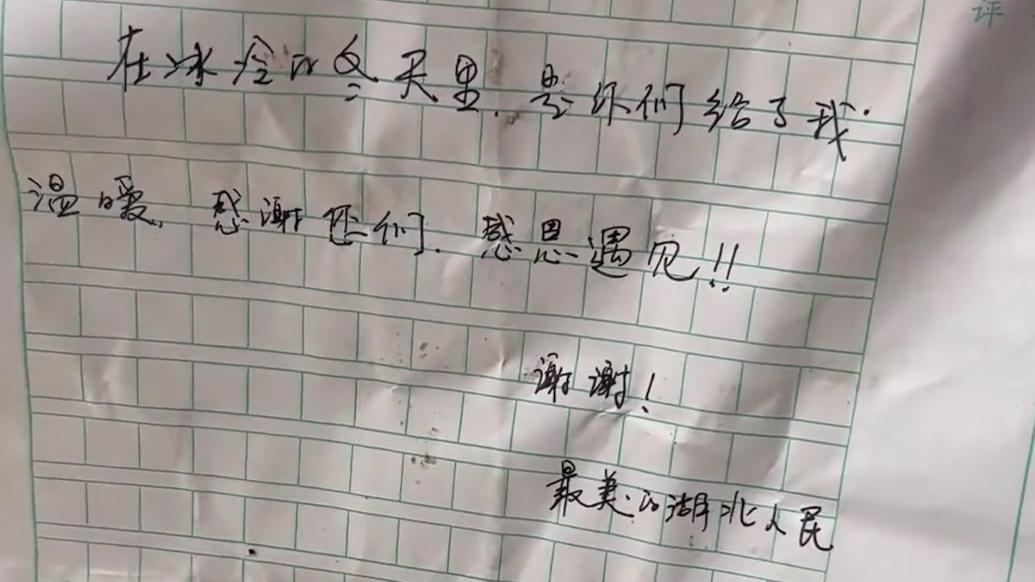 评
在冰冷的冬天里.是你们给了我.
温暖,感谢您们.感恩遇见!!
谢谢!
最美的湖北人民